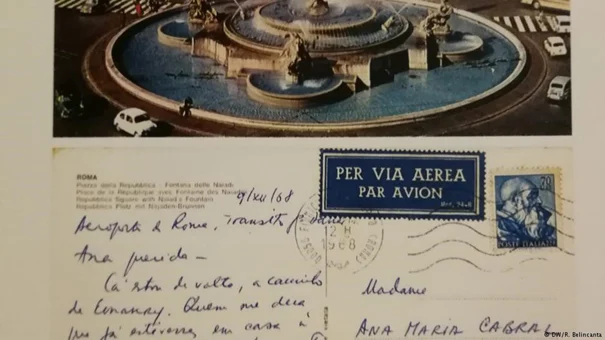 ROMA
Piazza della Repubblica - Fontana delle Naiadi
Place de la République avec Fontaine des Naiades
Republica Square with Naiad's Fountain
Republica Platz mit Najaden-Brunnen
9/XII/68
Aeroporto de Roma, transito
Ana querida —
Cá estou de volta, a caminho
de Conakry. Quem me dera
que já estivesses em casa à
PER VIA AEREA
PAR AVION
12 H
1968
POSTE ITALIANE
Madame
ANA MARIA CABRAL
© DW/R. Belincanta